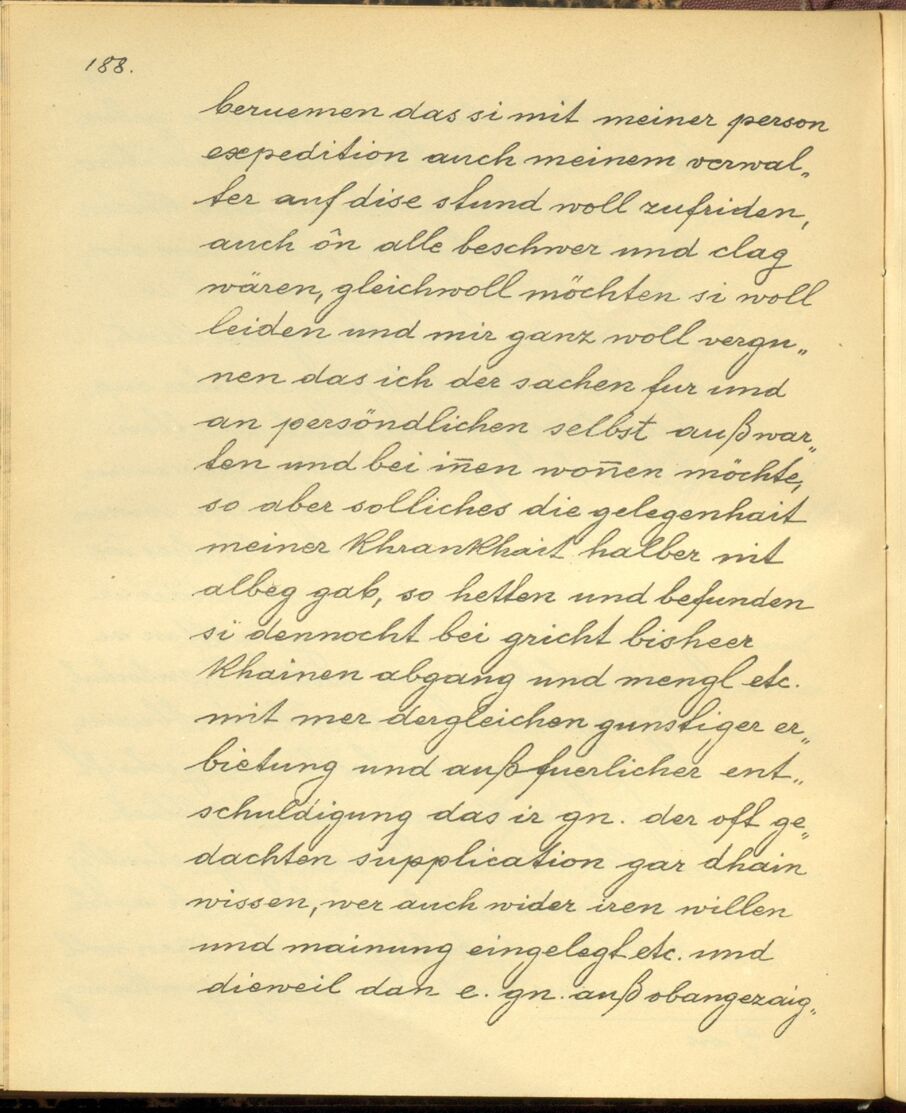 188.
beruemen das si mit meiner person
expedition auch meinem verwal„
ter auf dise stund woll zufriden,
auch ôn alle beschwer und clag
wären, gleichwoll möchten si woll
leiden und mir ganz woll vergu„
nen das ich der sachen fur und
an persöndlichen selbst außwar„
ten und bei iñen woñen möchte,
so aber solliches die gelegenhait
meiner Khrankhait halber nit
albeg gab, so hetten und befunden
si dennocht bei gricht bisheer
Khainen abgang und mengl etc.
mit mer dergleichen gunstiger er„
bietung und außfuerlicher ent„
schuldigung das ir gn. der oft ge„
dachten supplication gar dhain
wissen, wer auch wider iren willen
und mainung eingelegt etc. und
dieweil dan e. gn. auß obangezaig„